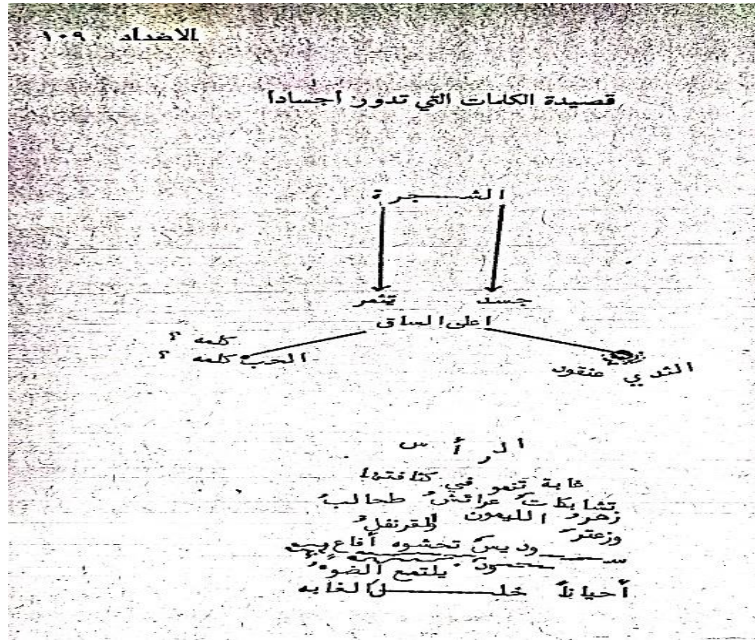 الاضداد ١٠٩
قصيدة الكلمات التي تدور أجساداً
الشـــجرة
جسد تثمر
اعلى الساق
كلمه ؟
الحب كلمه ؟
الثدي عنقود
الرأس
غابة تنمو في كثافتها
تشابكت عرائش طحالب
زهر الليمون القرنفل
وزعتر
تحشوه أفاع
يلتمع الضوء
أحياناً خلـــــل الغابه